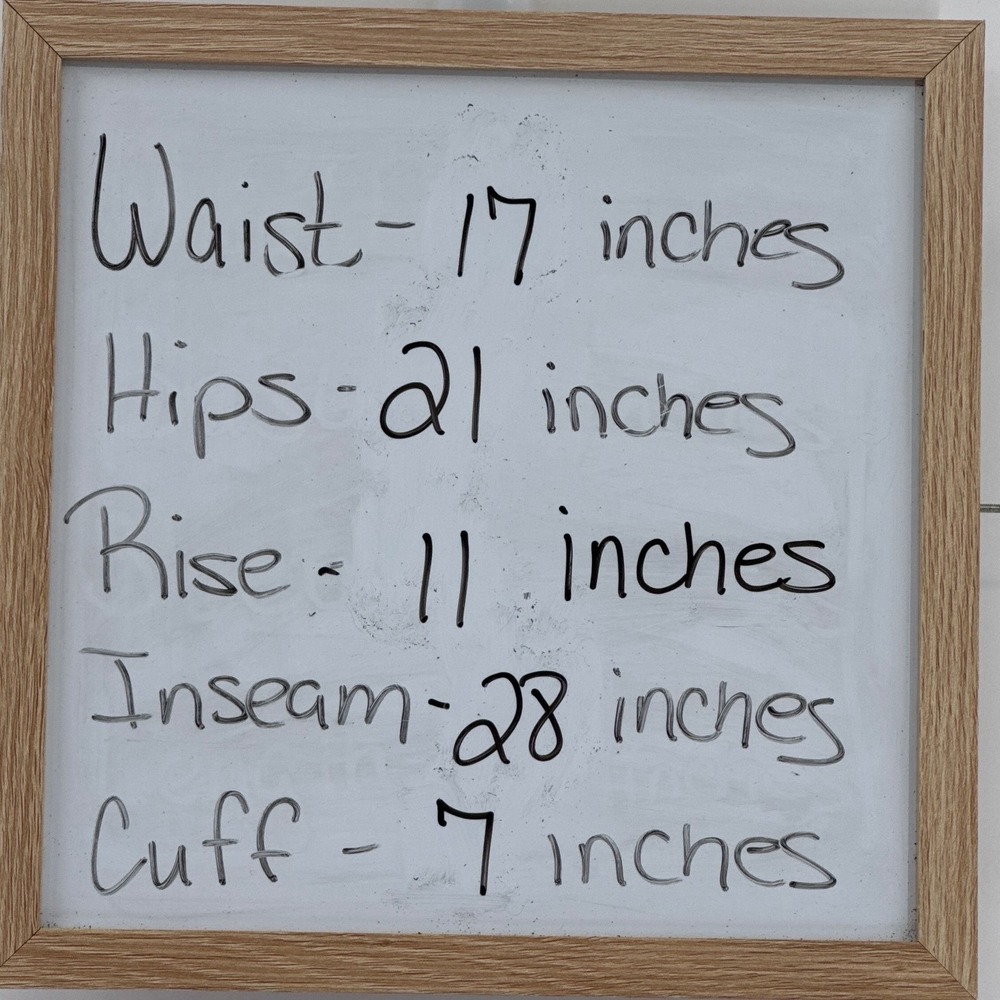 Waist - 17 inches
Hips - 21 inches
Rise - 11 inches
Inseam - 28 inches
Cuff - 7 inches